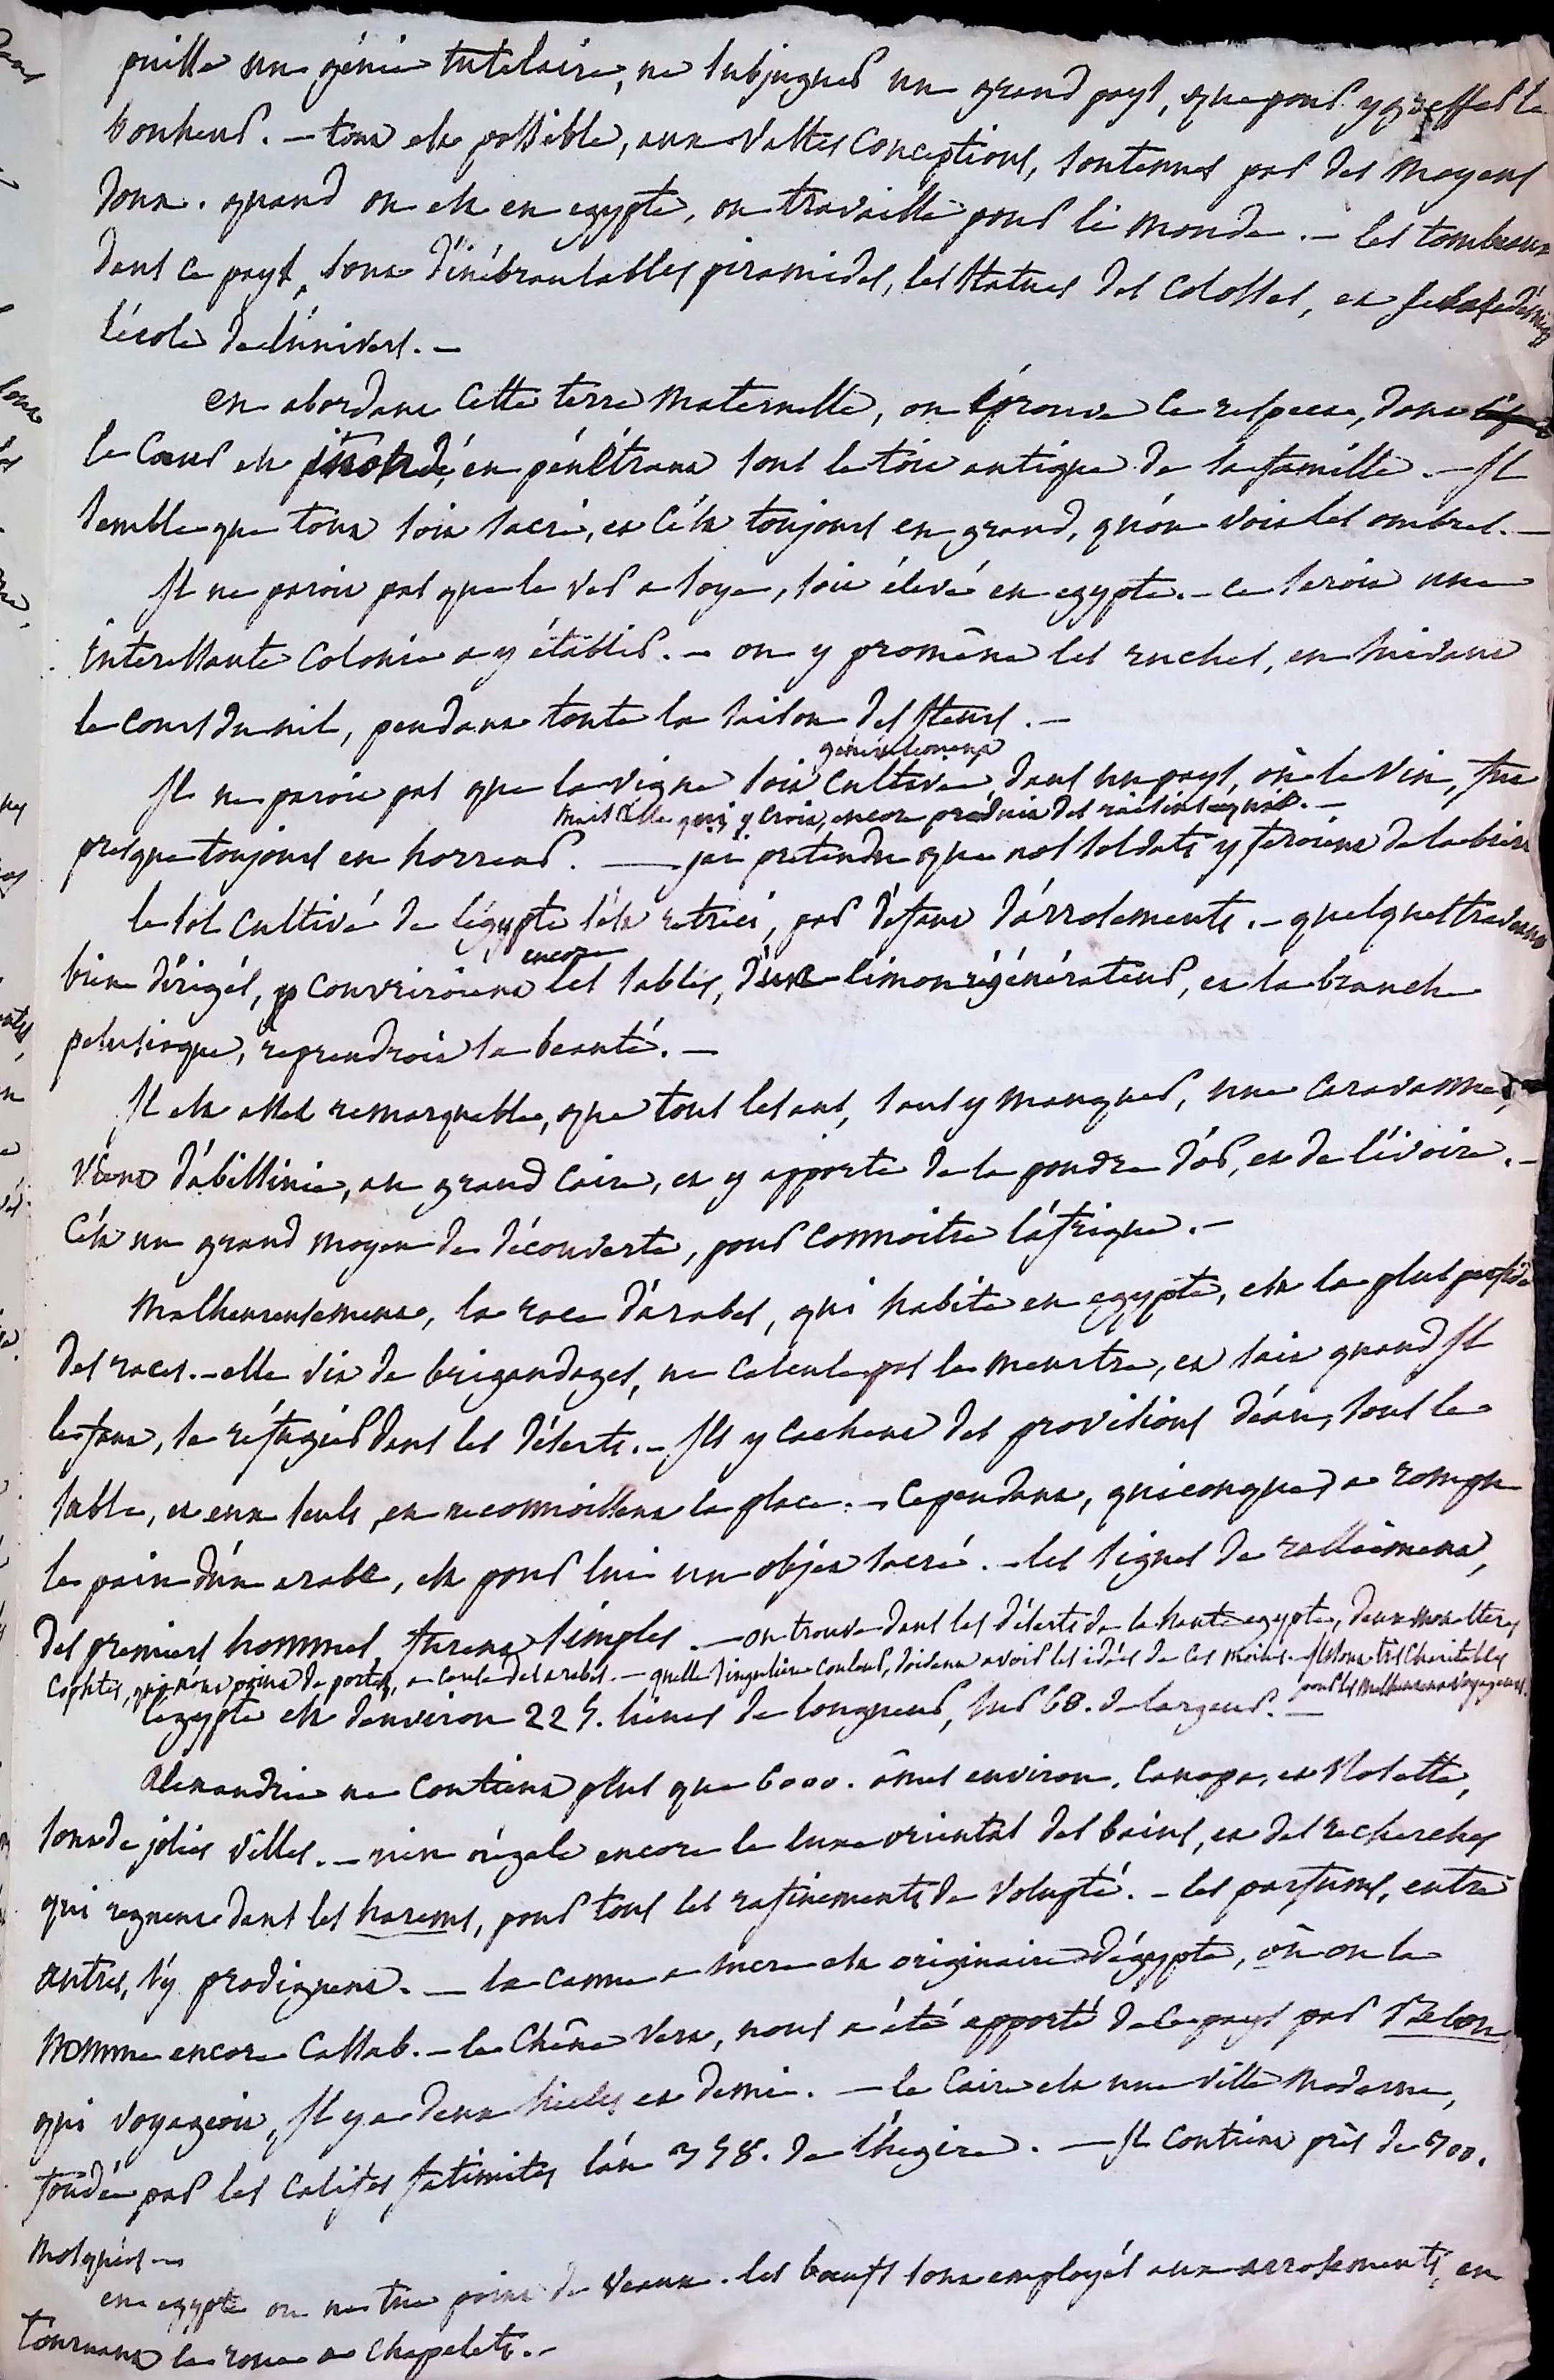 puisse un génie tutelaire, ne subjuguer un grand pays, que pour y greffer le
bonheur. — tout est possible, aux vastes conceptions, soutenues par des moyens
doux. quand on est en egypte, on travaille pour le monde. — les tombeaux
dans ce pays, sont d'inébranlables piramides, les statues des colosses, et
l'école de l'univers. —
en abordant cette terre maternelle, on éprouve ce respect, dont
le cœur est en pénétrant sous le toit antique de sa famille. — Il
semble que tout soit sacré, et c'est toujours en grand, qu'on voit les ombres. —
Il ne paroit pas que le ver a soye, soit élevé en egypte. — ce seroit une
interessante colonie a y établir. — on y promène les ruches, en suivant
le cours du nil, pendant toute la saison des fleurs. —
généralement
Il ne paroit pas que la vigne soit cultivée, dans un pays, où le vin, fut
mais celle qui y croit, encore produit des raisins exquis. —
presque toujours en horreur. — j'ai pretendu que nos soldats y feroient de la bière
le sol cultivé de l'égypte s'est retreci, par défaut d'arrosements. — quelques travaux
encore
bien dirigés, y couvriroient les sables, d'un limon régénérateur, et la branche
pelusiaque, reprendroit sa beauté. —
Il est assez remarquable, que tous les ans, sans y manquer, une caravanne,
vient d'abissinie, au grand Caire, et y apporte de la poudre d'or, et de l'ivoire. —
c'est un grand moyen de découverte, pour connoitre l'afrique. —
Malheureusement, la race d'arabes, qui habite en egypte, est la plus perfide
des races. — elle vit de brigandages, ne calcule pas le meurtre, et sait quand Il
le faut, se réfugier dans les déserts. — Ils y cachent des provisions d'eau, sous le
sable, et eux seuls, en reconnoissent la place. — cependant, quiconque a rompu
le pain d'un arabe, est pour lui un objet sacré. — les signes de ralliement,
des premiers hommes, furent simples. — on trouve dans les déserts de la haute egypte, deux monasteres
cophtes, qui n'ont point de portes, a cause des arabes. — quelle singuliere couleur, doivent avoir les idées de ces moines. — Ils sont très charitables
pour les malheureux voyageurs.
l'égypte est d'environ 225. lieues de longueur, sur 68. de largeur. —
Alexandrie ne contient plus que 6000. âmes environ, Canope, et Rosette,
sont de jolies villes. — rien n'égale encore le luxe oriental des bains, et des recherches
qui regnent dans les harems, pour tous les rafinements de volupté. — les parfums, entre
autres, s'y prodiguent. — la canne a sucre est originaire d'égypte, où on la
nomme encore Cassab. — le chêne vert, nous a été apporté de ce pays par Belon
qui voyageoit, Il y a deux siecles et demi. — le Caire est une ville moderne,
fondée par les califes fatimites l'an 358. de l'hegire. — Il contient près de 700.
mosquées —
en egypte on ne tue point de veaux. les bœufs sont employés aux arrosements, en
tournant la roue a chapelets. —